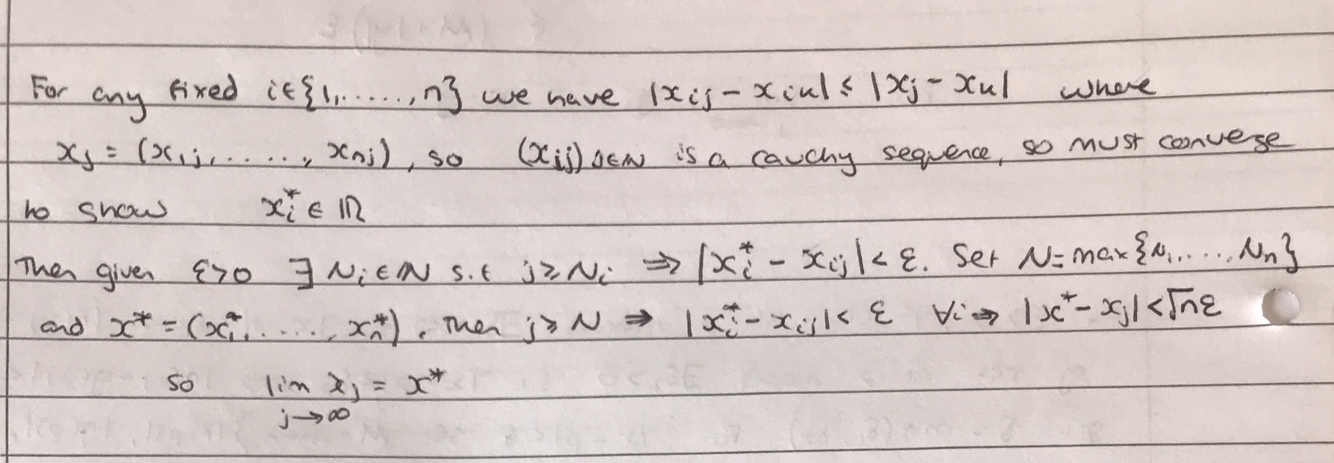 For any fixed i∈{1,.....,n} we have |xij - xiu| ≤ |xj - xu| where
xj = (x1j,....., xnj), so (xij)j∈N is a cauchy sequence, so must converge
to show xi* ∈ ℝ
Then given ε>0 ∃ Ni∈N s.t j≥Ni ⇒ |xi* - xij| < ε. Set N=max{N1,.....Nn}
and x* = (x1*,....., xn*). Then j≥N ⇒ |xi* - xij| < ε ∀i ⇒ |x* - xj| < √nε
so lim xj = x*
j→∞